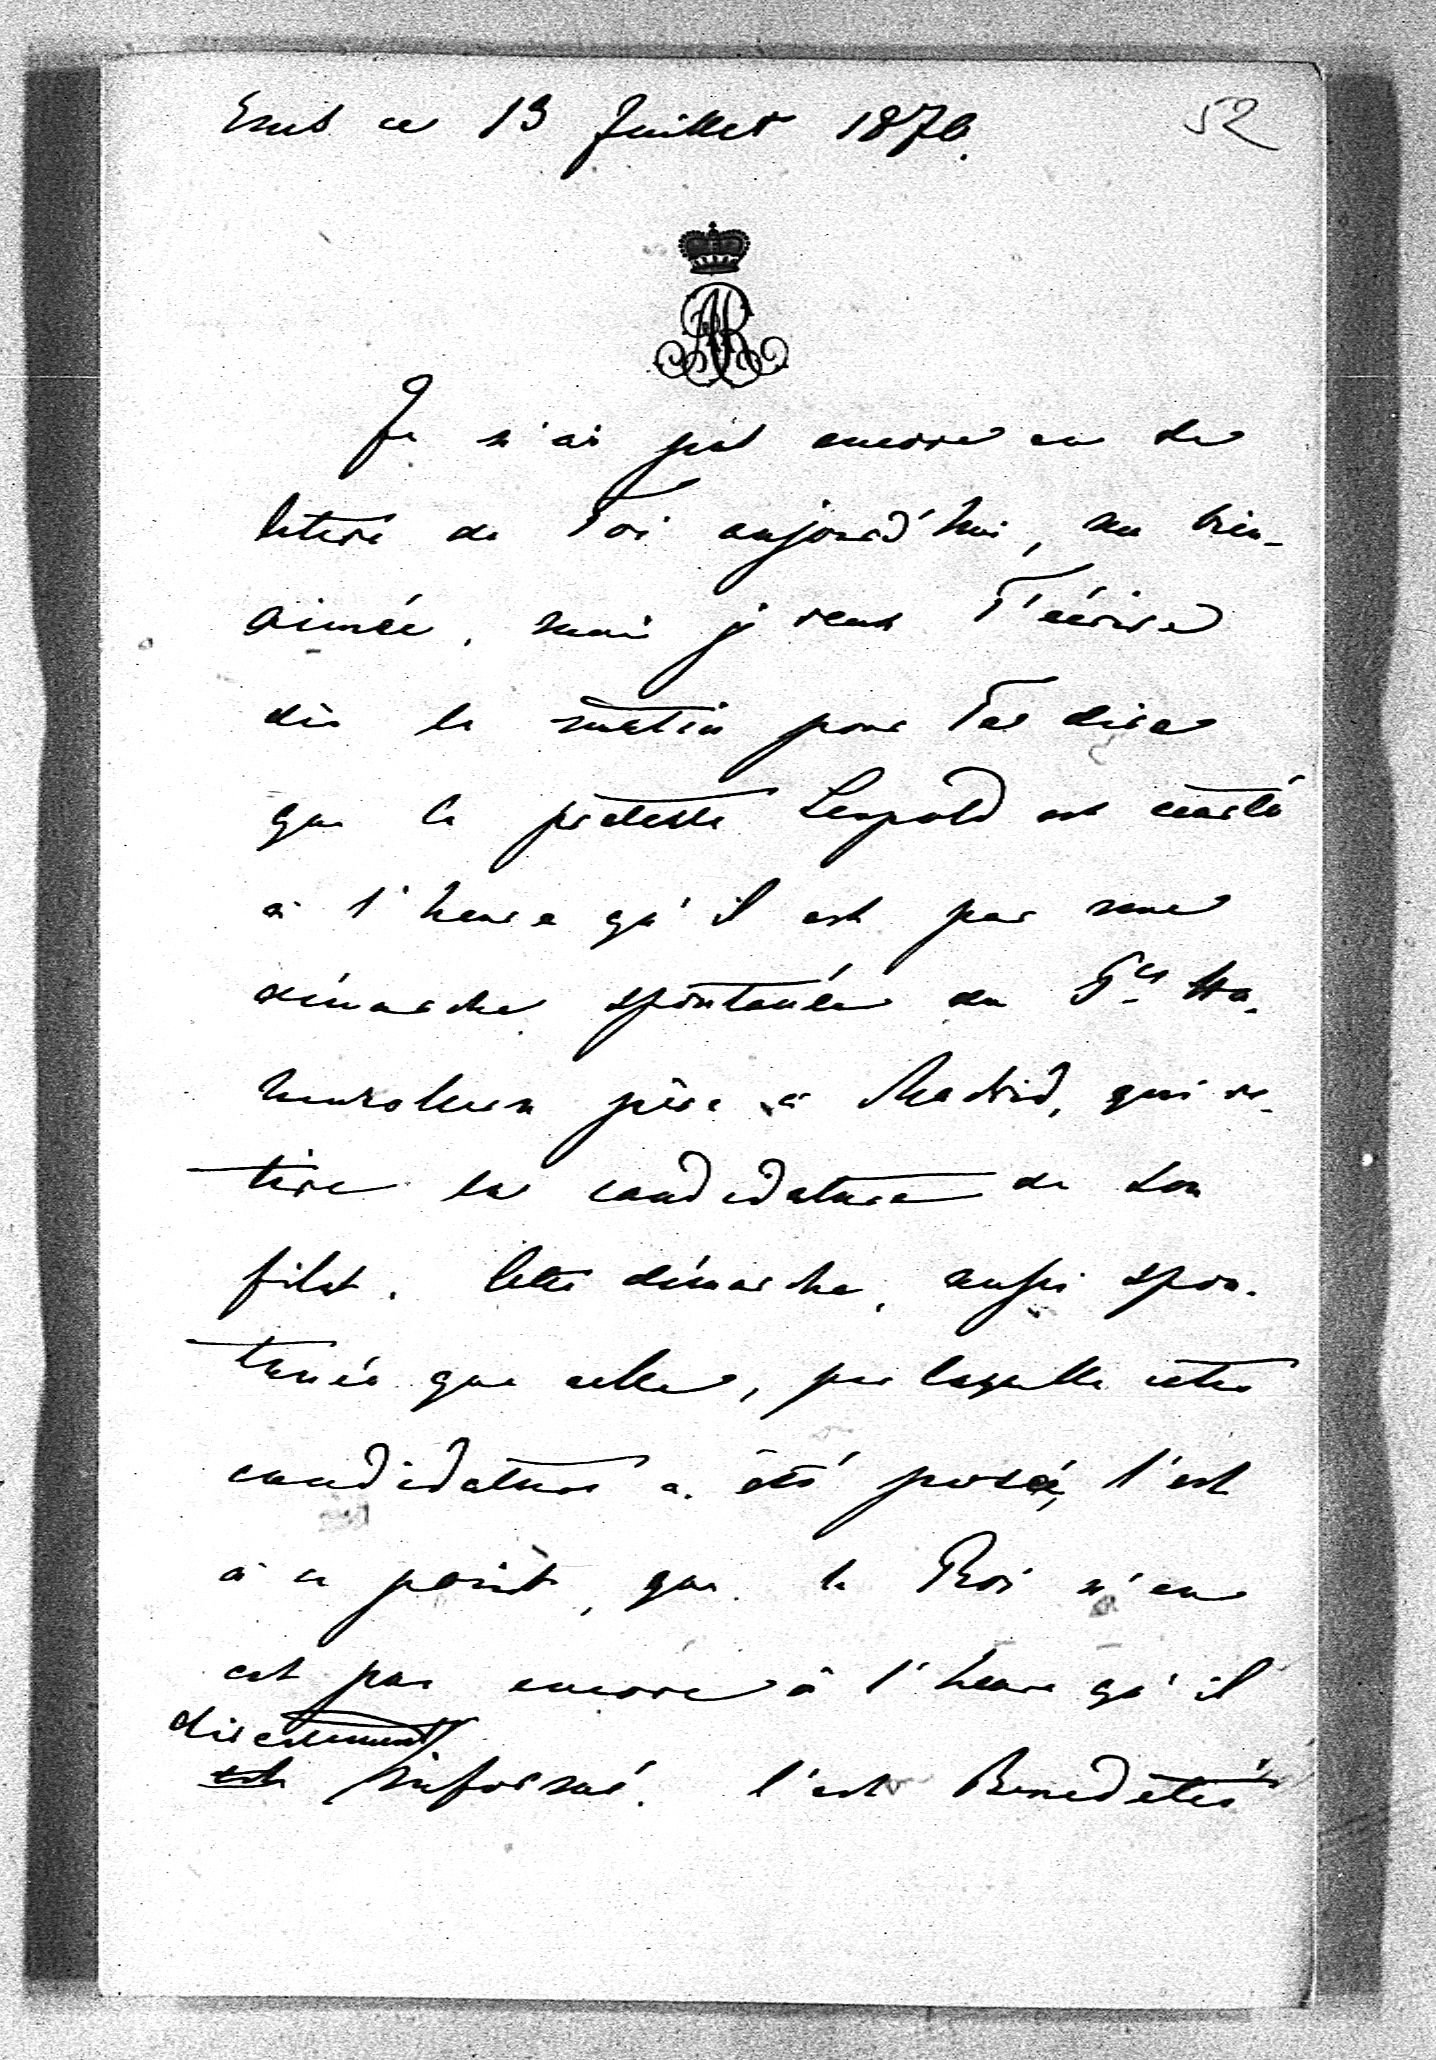 Ems ce 13 Juillet 1870.
52
AR
Je n'ai pas encore eu de
lettre de Toi aujourd'hui, ma bien-
aimée, mais je veux T'écrire
dès le matin pour Te dire
que le prétexte Leopold est écarté
à l'heure qu'il est par une
démarche spontanée du Pce Ho-
henzollern père à Madrid, qui re-
tire la candidature de son
fils. Cette démarche, aussi spon-
tanée que celle, par laquelle cette
candidature a été posée, l'est
à ce point, que le Roi n'en
est pas encore à l'heure qu'il
directement
est informé. C'est Benedetti